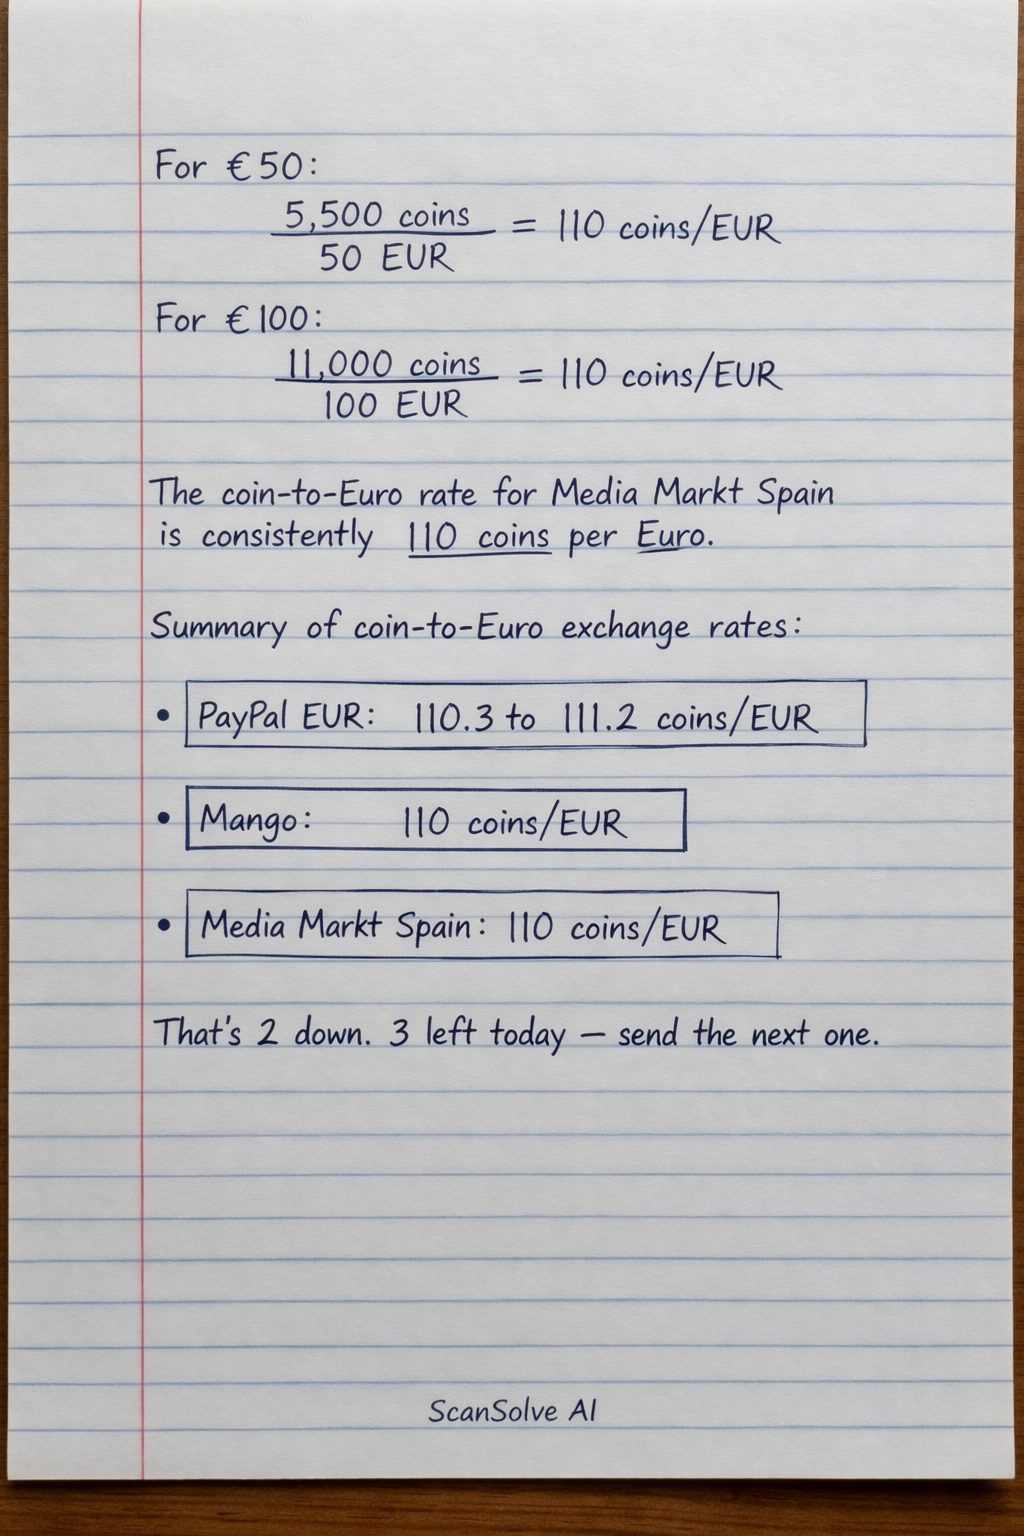 For €50:
5,500 coins
50 EUR
= 110 coins/EUR
For €100:
11,000 coins
100 EUR
= 110 coins/EUR
The coin-to-Euro rate for Media Markt Spain
is consistently 110 coins per Euro.
Summary of coin-to-Euro exchange rates:
• PayPal EUR: 110.3 to 111.2 coins/EUR
• Mango: 110 coins/EUR
• Media Markt Spain: 110 coins/EUR
That's 2 down. 3 left today – send the next one.
ScanSolve AI